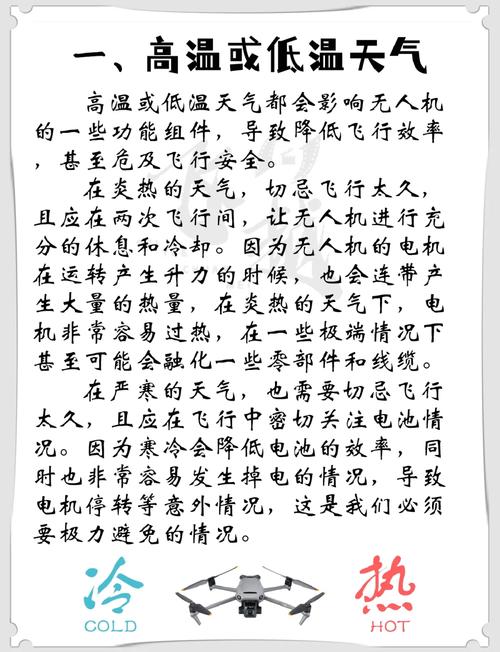 一、高温或低温天气
高温或低温天气都会影响无人机
的一些功能组件，导致降低飞行效率
，甚至危及飞行安全。
在炎热的天气，切忌飞行太久，
且应在两次飞行间，让无人机进行充
分的休息和冷却。因为无人机的电机
在运转产生升力的时候，也会连带产
生大量的热量，在炎热的天气下，电
机非常容易过热，在一些极端情况下
甚至可能会融化一些零部件和线缆。
在严寒的天气，也需要切忌飞行
太久，且应在飞行中密切关注电池情
况。因为寒冷会降低电池的效率，同
时也非常容易发生掉电的情况，导致
电机停转等意外情况，这是我们必须
要极力避免的情况。
冷
COLD
热
HOT